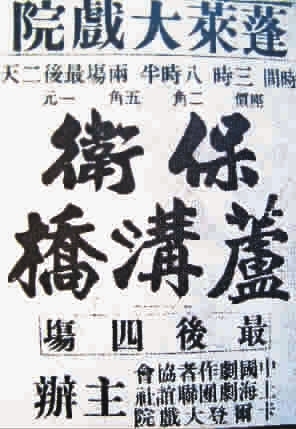 蓬萊大戲院
時間 三時 八時半 兩場最後二天
座價 二角 五角 一元
保衛
蘆溝橋
最後四場
中國劇作者協會
上海劇團聯誼社
卡爾登大戲院
主辦